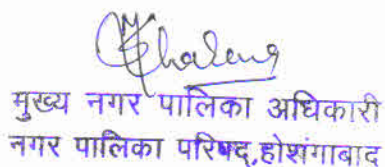 मुख्य नगर पालिका अधिकारी
नगर पालिका परिषद,होशंगाबाद